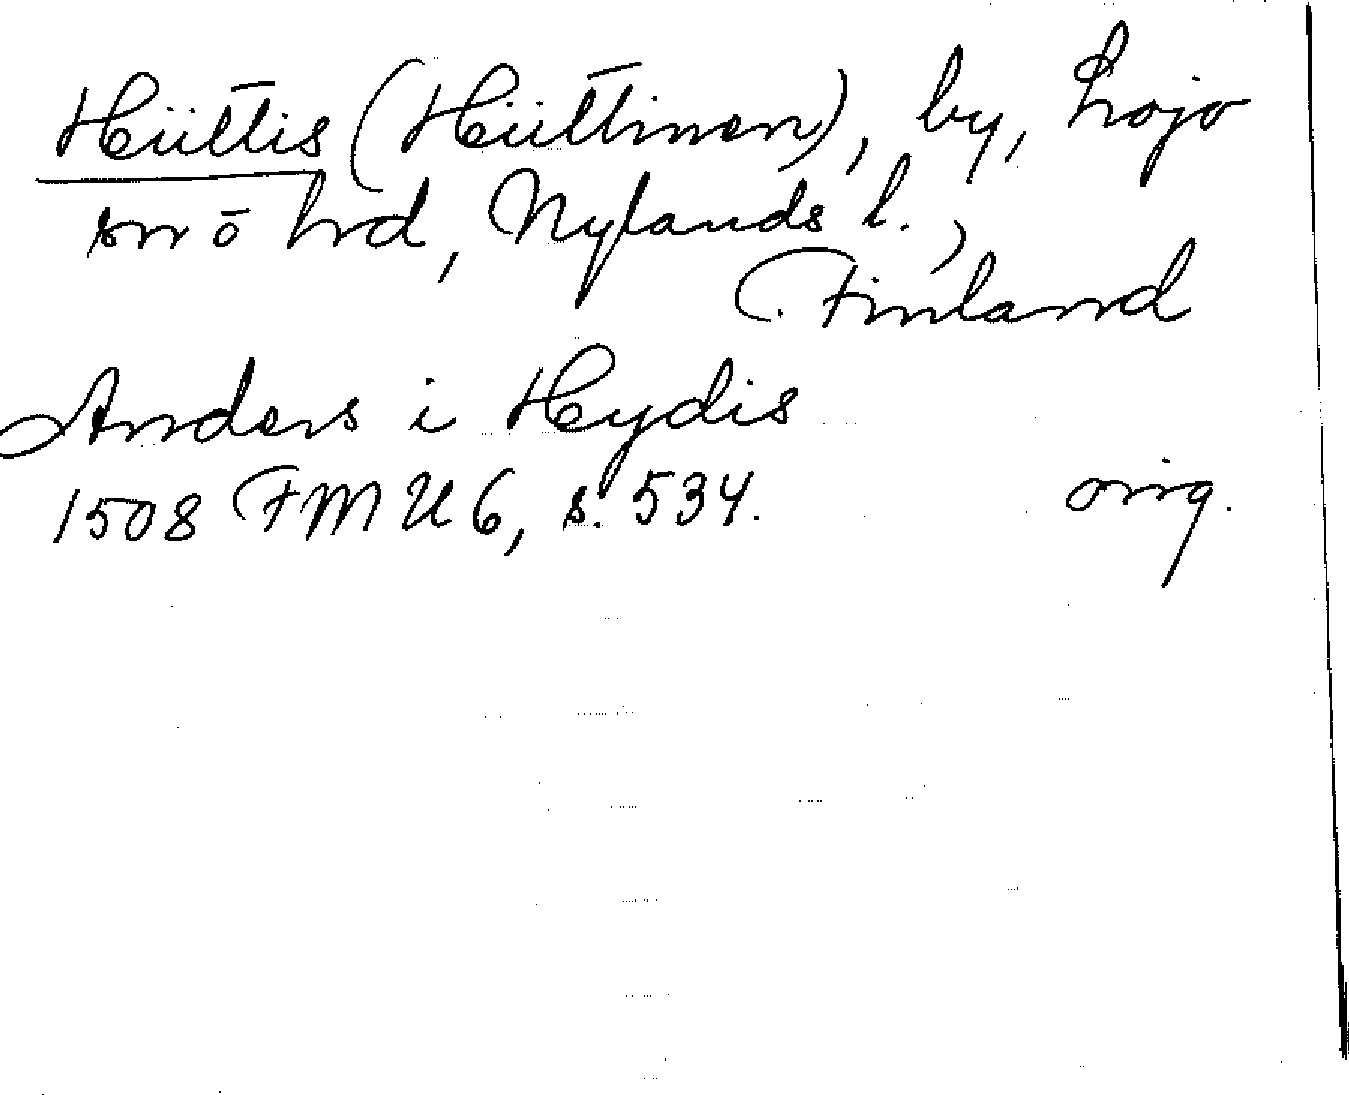 Hiittis (Hiittinen), by, Lojo
sn o hrd, Nylands l.,
Finland
Anders i Hydis
1508 FMU 6, s. 534. orig.